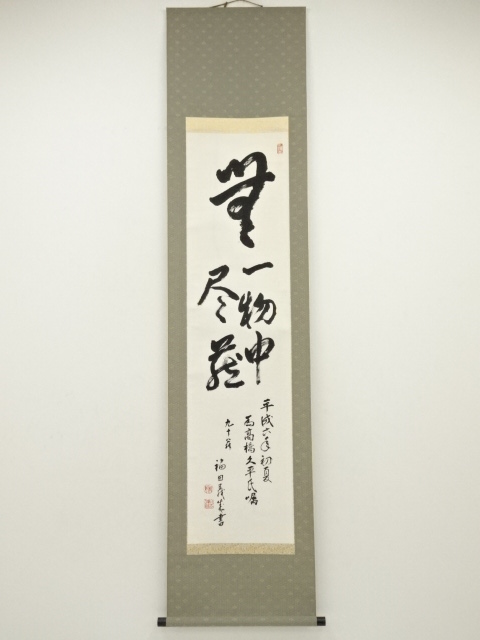 無
一物中
尽蔵
平成六年初夏
為高橋久平氏嘱
九十翁
福田
書